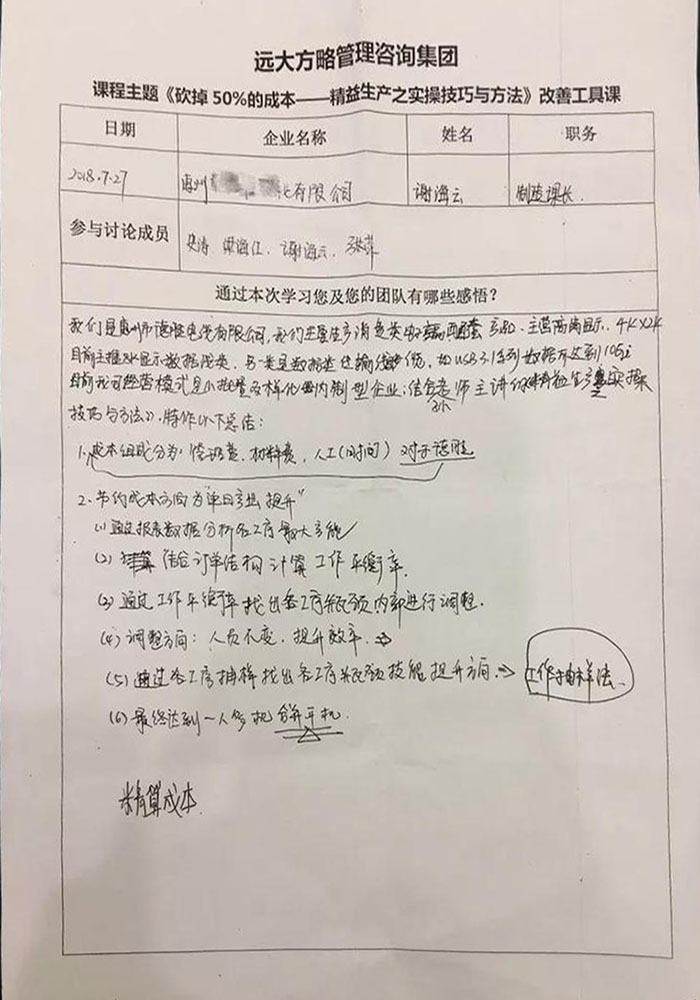 远大方略管理咨询集团
课程主题《砍掉50%的成本——精益生产之实操技巧与方法》改善工具课
日期 企业名称 姓名 职务
2018.7.27 惠州 有限公司 谢海云 制造课长
参与讨论成员 梁海江、谢海云、张萍
通过本次学习您及您的团队有哪些感悟?
我们是惠州市德胜电缆有限公司,我们主要生产消费类 主营高清显示、4K×2K
目前主推8K显示数据线类,另一类是数据类传输线缆,如USB3.1系列数据
目前我司经营模式是小批量多样化 内制型企业;结合 老师主讲 精益生产之实操
技巧与方法》,特作以下总结:
1.成本组成分为: 材料费,人工(时间)对于德胜
2.节约成本方向为"单日产出提升"
(1)通过报表数据分析各工序最大产能
(2)结合订单结构计算工作平衡率.
(3)通过工作平衡率找出各工序瓶颈内部进行调整.
(4)调整方向:人员不变,提升效率.⇒
(5)通过各工序抽样找出各工序瓶颈技能提升方向.⇒ 工作抽样法、
(6)最终达到一人多机 合并平机.
精算成本